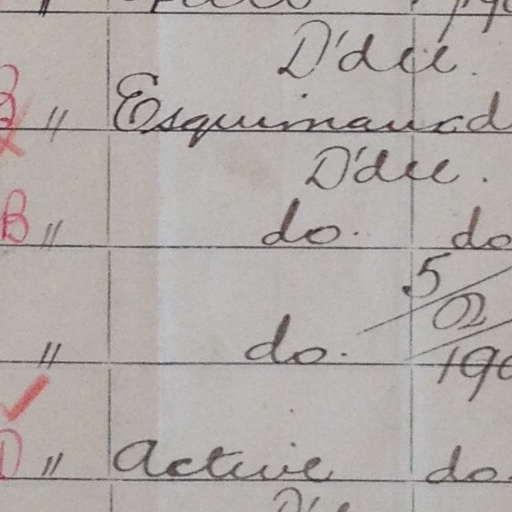 D'dee.
B " Esquimaux d
D'dee.
B " do. do
5/02/190
" do.
D " Active do.